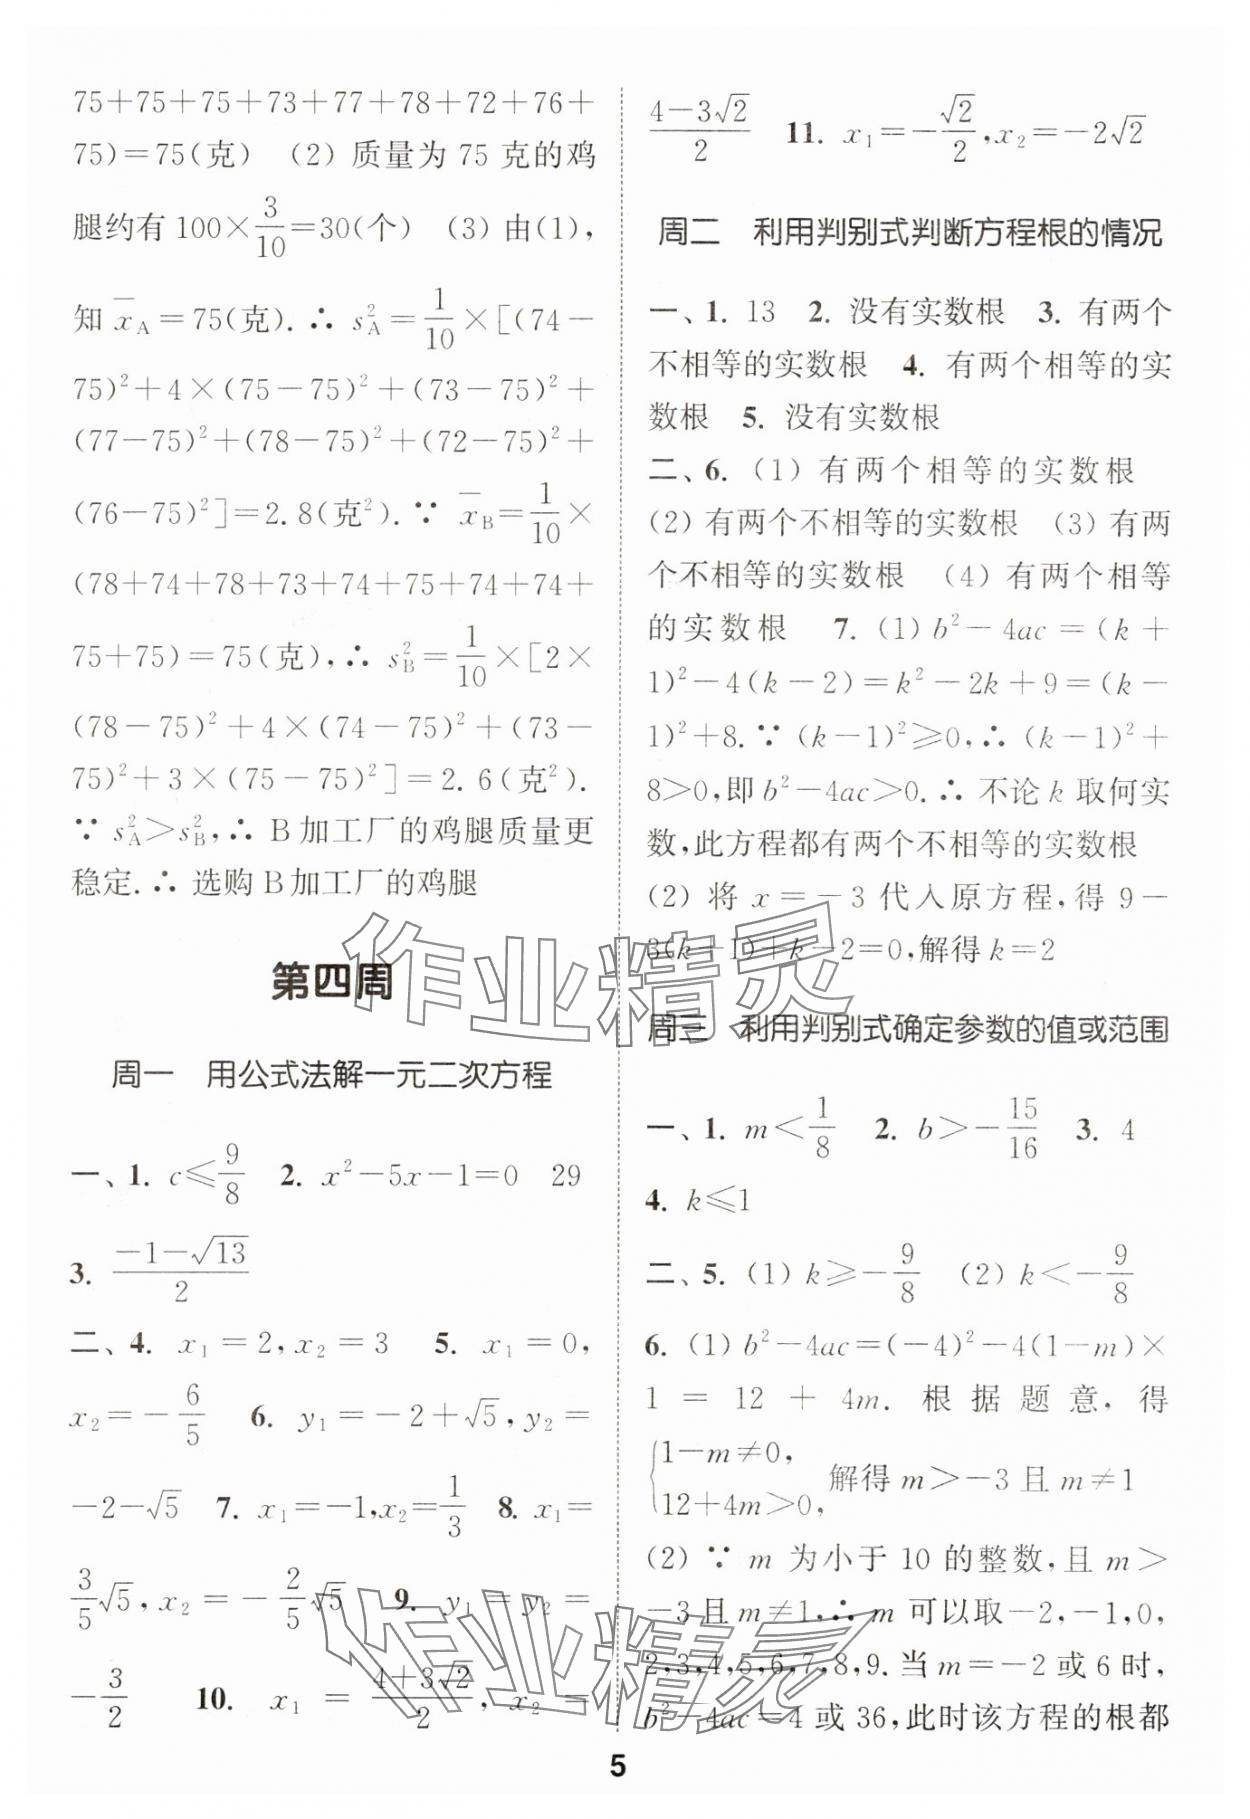 75+75+75+73+77+78+72+76+
75)=75(克) (2) 质量为 75 克的鸡
腿约有 100×3/10=30(个) (3) 由(1),
知 x̄_A=75(克).∴ s²_A=1/10×[(74-
75)²+4×(75-75)²+(73-75)²+
(77-75)²+(78-75)²+(72-75)²+
(76-75)²]=2.8(克²).∵ x̄_B=1/10×
(78+74+78+73+74+75+74+74+
75+75)=75(克),∴ s²_B=1/10×[2×
(78-75)²+4×(74-75)²+(73-
75)²+3×(75-75)²]=2.6(克²).
∵ s²_A>s²_B,∴ B加工厂的鸡腿质量更
稳定.∴ 选购B加工厂的鸡腿
第四周
周一 用公式法解一元二次方程
一、1. c≤9/8 2. x²-5x-1=0 29
3. (-1-√13)/2
二、4. x₁=2,x₂=3 5. x₁=0,
x₂=-6/5 6. y₁=-2+√5,y₂=
-2-√5 7. x₁=-1,x₂=1/3 8. x₁=
3/5√5,x₂=-2/5√5 9. y₁=y₂=
-3/2 10. x₁=(4+3√2)/2,x₂=
(4-3√2)/2 11. x₁=-√2/2,x₂=-2√2
周二 利用判别式判断方程根的情况
一、1. 13 2. 没有实数根 3. 有两个
不相等的实数根 4. 有两个相等的实
数根 5. 没有实数根
二、6. (1) 有两个相等的实数根
(2) 有两个不相等的实数根 (3) 有两
个不相等的实数根 (4) 有两个相等
的实数根 7. (1) b²-4ac=(k+
1)²-4(k-2)=k²-2k+9=(k-
1)²+8.∵ (k-1)²≥0,∴ (k-1)²+
8>0,即 b²-4ac>0.∴ 不论 k 取何实
数,此方程都有两个不相等的实数根
(2) 将 x=-3 代入原方程,得 9-
3(k+1)+k-2=0,解得 k=2
周三 利用判别式确定参数的值或范围
一、1. m<1/8 2. b>-15/16 3. 4
4. k≤1
二、5. (1) k≥-9/8 (2) k<-9/8
6. (1) b²-4ac=(-4)²-4(1-m)×
1=12+4m. 根据题意,得
{1-m≠0, 12+4m>0, 解得 m>-3 且 m≠1
(2) ∵ m 为小于 10 的整数,且 m>
-3且 m≠1,∴ m 可以取-2,-1,0,
2,3,4,5,6,7,8,9.当 m=-2 或 6 时,
b²-4ac=4 或 36,此时该方程的根都
5
作业精灵
作业精灵